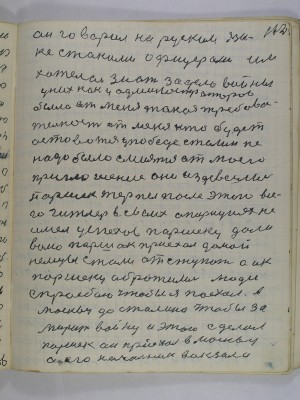 он говорил на руским язы-
ке стакими офицерами им
хотелос знат задело войны
у них как у администраторов
было от меня такая требова-
телност от меня кто будет
остоятся победе сталин не
надо было смеятся от моего
приглошение они издевалис
паршек терпел после этого ни-
го гитлер в своих операциях не
имел успехов паршеку дали
волю паршак приехал домой
немцы стали отступат а их
паршеку обротилис люди
с прозбою чтобы я поехал. в
москву до сталина чтобы за
мирит войну и этого сделал
паршек он приехал в москву
а его началник вокзала